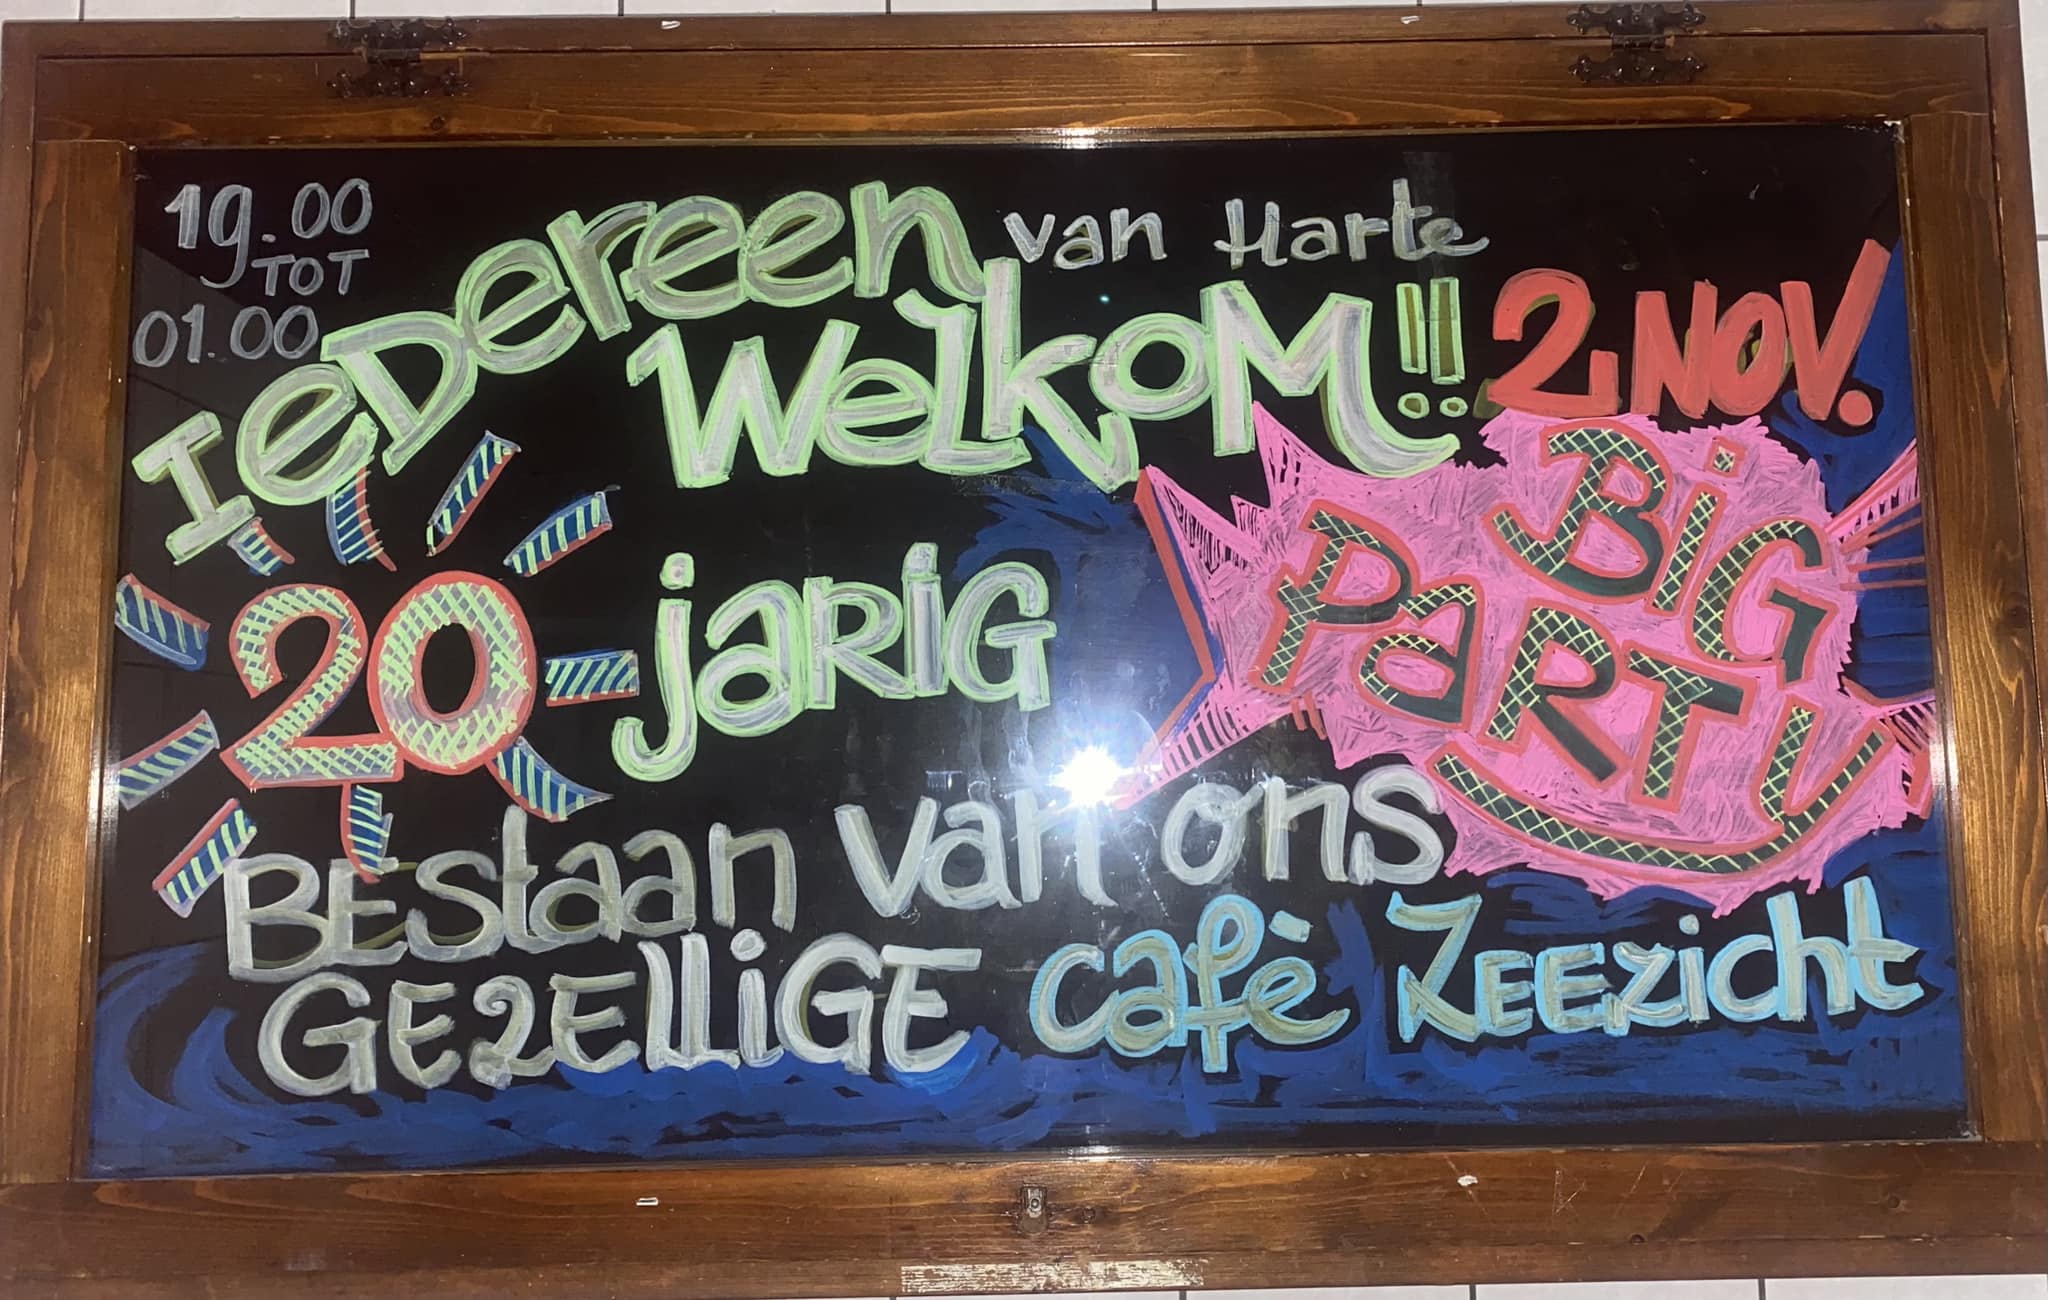 19.00
TOT
01.00
IEDereen van Harte
Welkom!! 2 NOV.
BIG
PARTY
20-jarig
BEStaan van ons
GEZElliGE cafè ZEEzicht